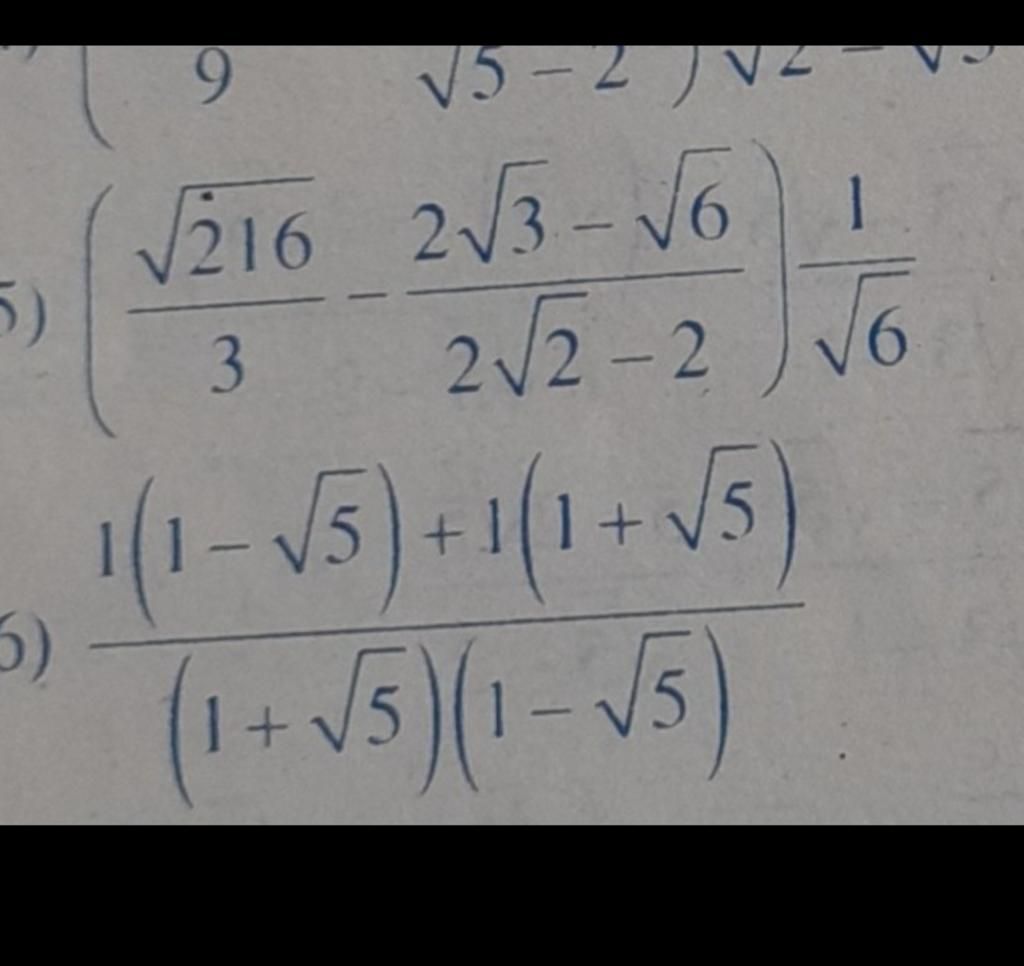 9 √5 − 2 ) √2 − √
5) ( √216 / 3 − (2√3 − √6) / (2√2 − 2) ) 1 / √6
6) 1(1 − √5) + 1(1 + √5)
(1 + √5)(1 − √5)